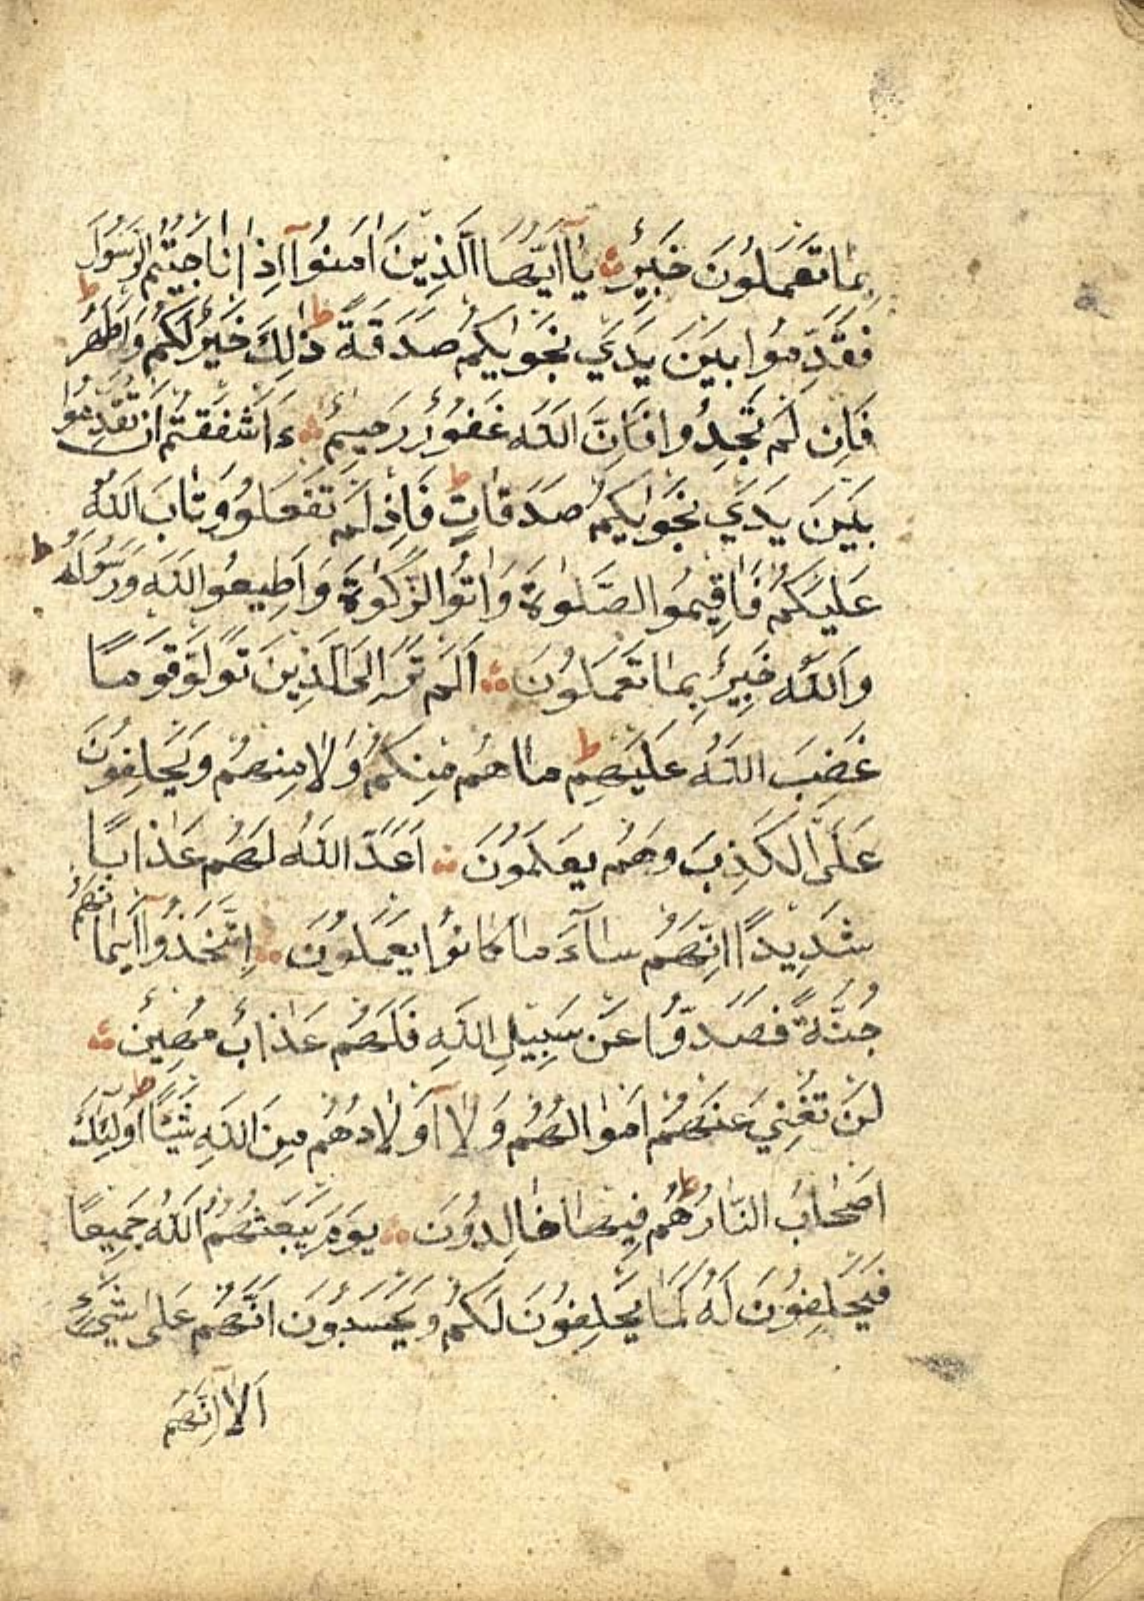 بِمَا تَعْمَلُونَ خَبِيرٌ يَاۤ اَيُّهَا الَّذِينَ اٰمَنُوۤا اِذَا نَاجَيْتُمُ الرَّسُولَ
فَقَدِّمُوا بَيْنَ يَدَيْ نَجْوٰيكُمْ صَدَقَةً ط ذٰلِكَ خَيْرٌ لَكُمْ وَاَطْهَرُ ط
فَاِنْ لَمْ تَجِدُوا فَاِنَّ اللّٰهَ غَفُورٌ رَحِيمٌ ءَاَشْفَقْتُمْ اَنْ تُقَدِّمُوا
بَيْنَ يَدَيْ نَجْوٰيكُمْ صَدَقَاتٍ ط فَاِذْ لَمْ تَفْعَلُوا وَتَابَ اللّٰهُ
عَلَيْكُمْ فَاَقِيمُوا الصَّلٰوةَ وَاٰتُوا الزَّكٰوةَ وَاَطِيعُوا اللّٰهَ وَرَسُولَهُ ط
وَاللّٰهُ خَبِيرٌ بِمَا تَعْمَلُونَ اَلَمْ تَرَ اِلَى الَّذِينَ تَوَلَّوْا قَوْمًا
غَضِبَ اللّٰهُ عَلَيْهِمْ ط مَا هُمْ مِنْكُمْ وَلَا مِنْهُمْ وَيَحْلِفُونَ
عَلَى الْكَذِبِ وَهُمْ يَعْلَمُونَ اَعَدَّ اللّٰهُ لَهُمْ عَذَابًا
شَدِيدًا اِنَّهُمْ سَاۤءَ مَا كَانُوا يَعْمَلُونَ اِتَّخَذُوۤا اَيْمَانَهُمْ
جُنَّةً فَصَدُّوا عَنْ سَبِيلِ اللّٰهِ فَلَهُمْ عَذَابٌ مُهِينٌ
لَنْ تُغْنِيَ عَنْهُمْ اَمْوَالُهُمْ وَلَاۤ اَوْلَادُهُمْ مِنَ اللّٰهِ شَيْئًا ط اُولٰۤئِكَ
اَصْحَابُ النَّارِ ط هُمْ فِيهَا خَالِدُونَ يَوْمَ يَبْعَثُهُمُ اللّٰهُ جَمِيعًا
فَيَحْلِفُونَ لَهُ كَمَا يَحْلِفُونَ لَكُمْ وَيَحْسَبُونَ اَنَّهُمْ عَلٰى شَيْءٍ
اَلَاۤ اِنَّهُمْ